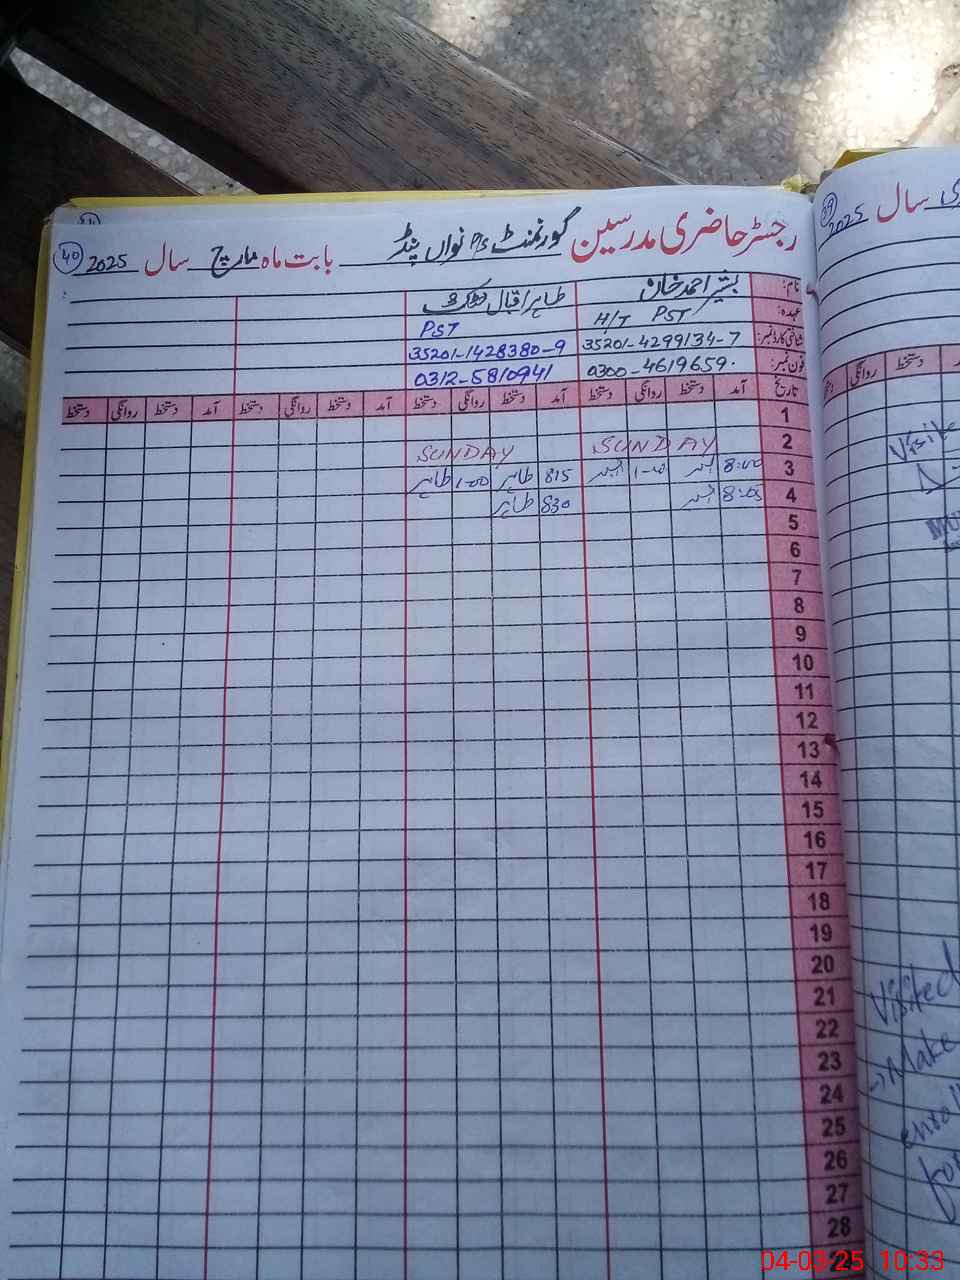 رجسٹر حاضری مدرسین گورنمنٹ P/S نواں پنڈ بابت ماہ مارچ سال 2025
40
نام: بشیر احمد خان طاہر اقبال
عہدہ: H/T PST PST
شناختی کارڈ نمبر: 35201-4299134-7 35201-1428380-9
فون نمبر: 0300-4619659 0312-5810941
تاریخ آمد دستخط روانگی دستخط آمد دستخط روانگی دستخط آمد دستخط روانگی دستخط آمد دستخط روانگی دستخط
1
2 SUNDAY SUNDAY
3 8:00 1-00 815 طاہر 1-00 طاہر
4 8:05 830 طاہر
5
6
7
8
9
10
11
12
13
14
15
16
17
18
19
20
21
22
23
24
25
26
27
28
39
سال 2025
روانگی دستخط
Visite
Visited
→ Make
enroll
for
04-03-25 10:33